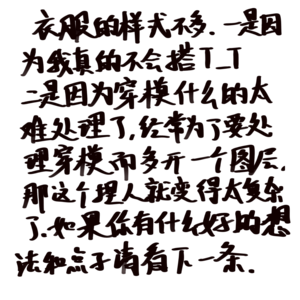 衣服的样式不多.一是因
为我真的不会搭T_T
二是因为穿模什么的太
难处理了,经常为了要处
理穿模而多开一个图层.
那这个捏人就变得太复杂
了.如果你有什么好的想
法和点子请看下一条.